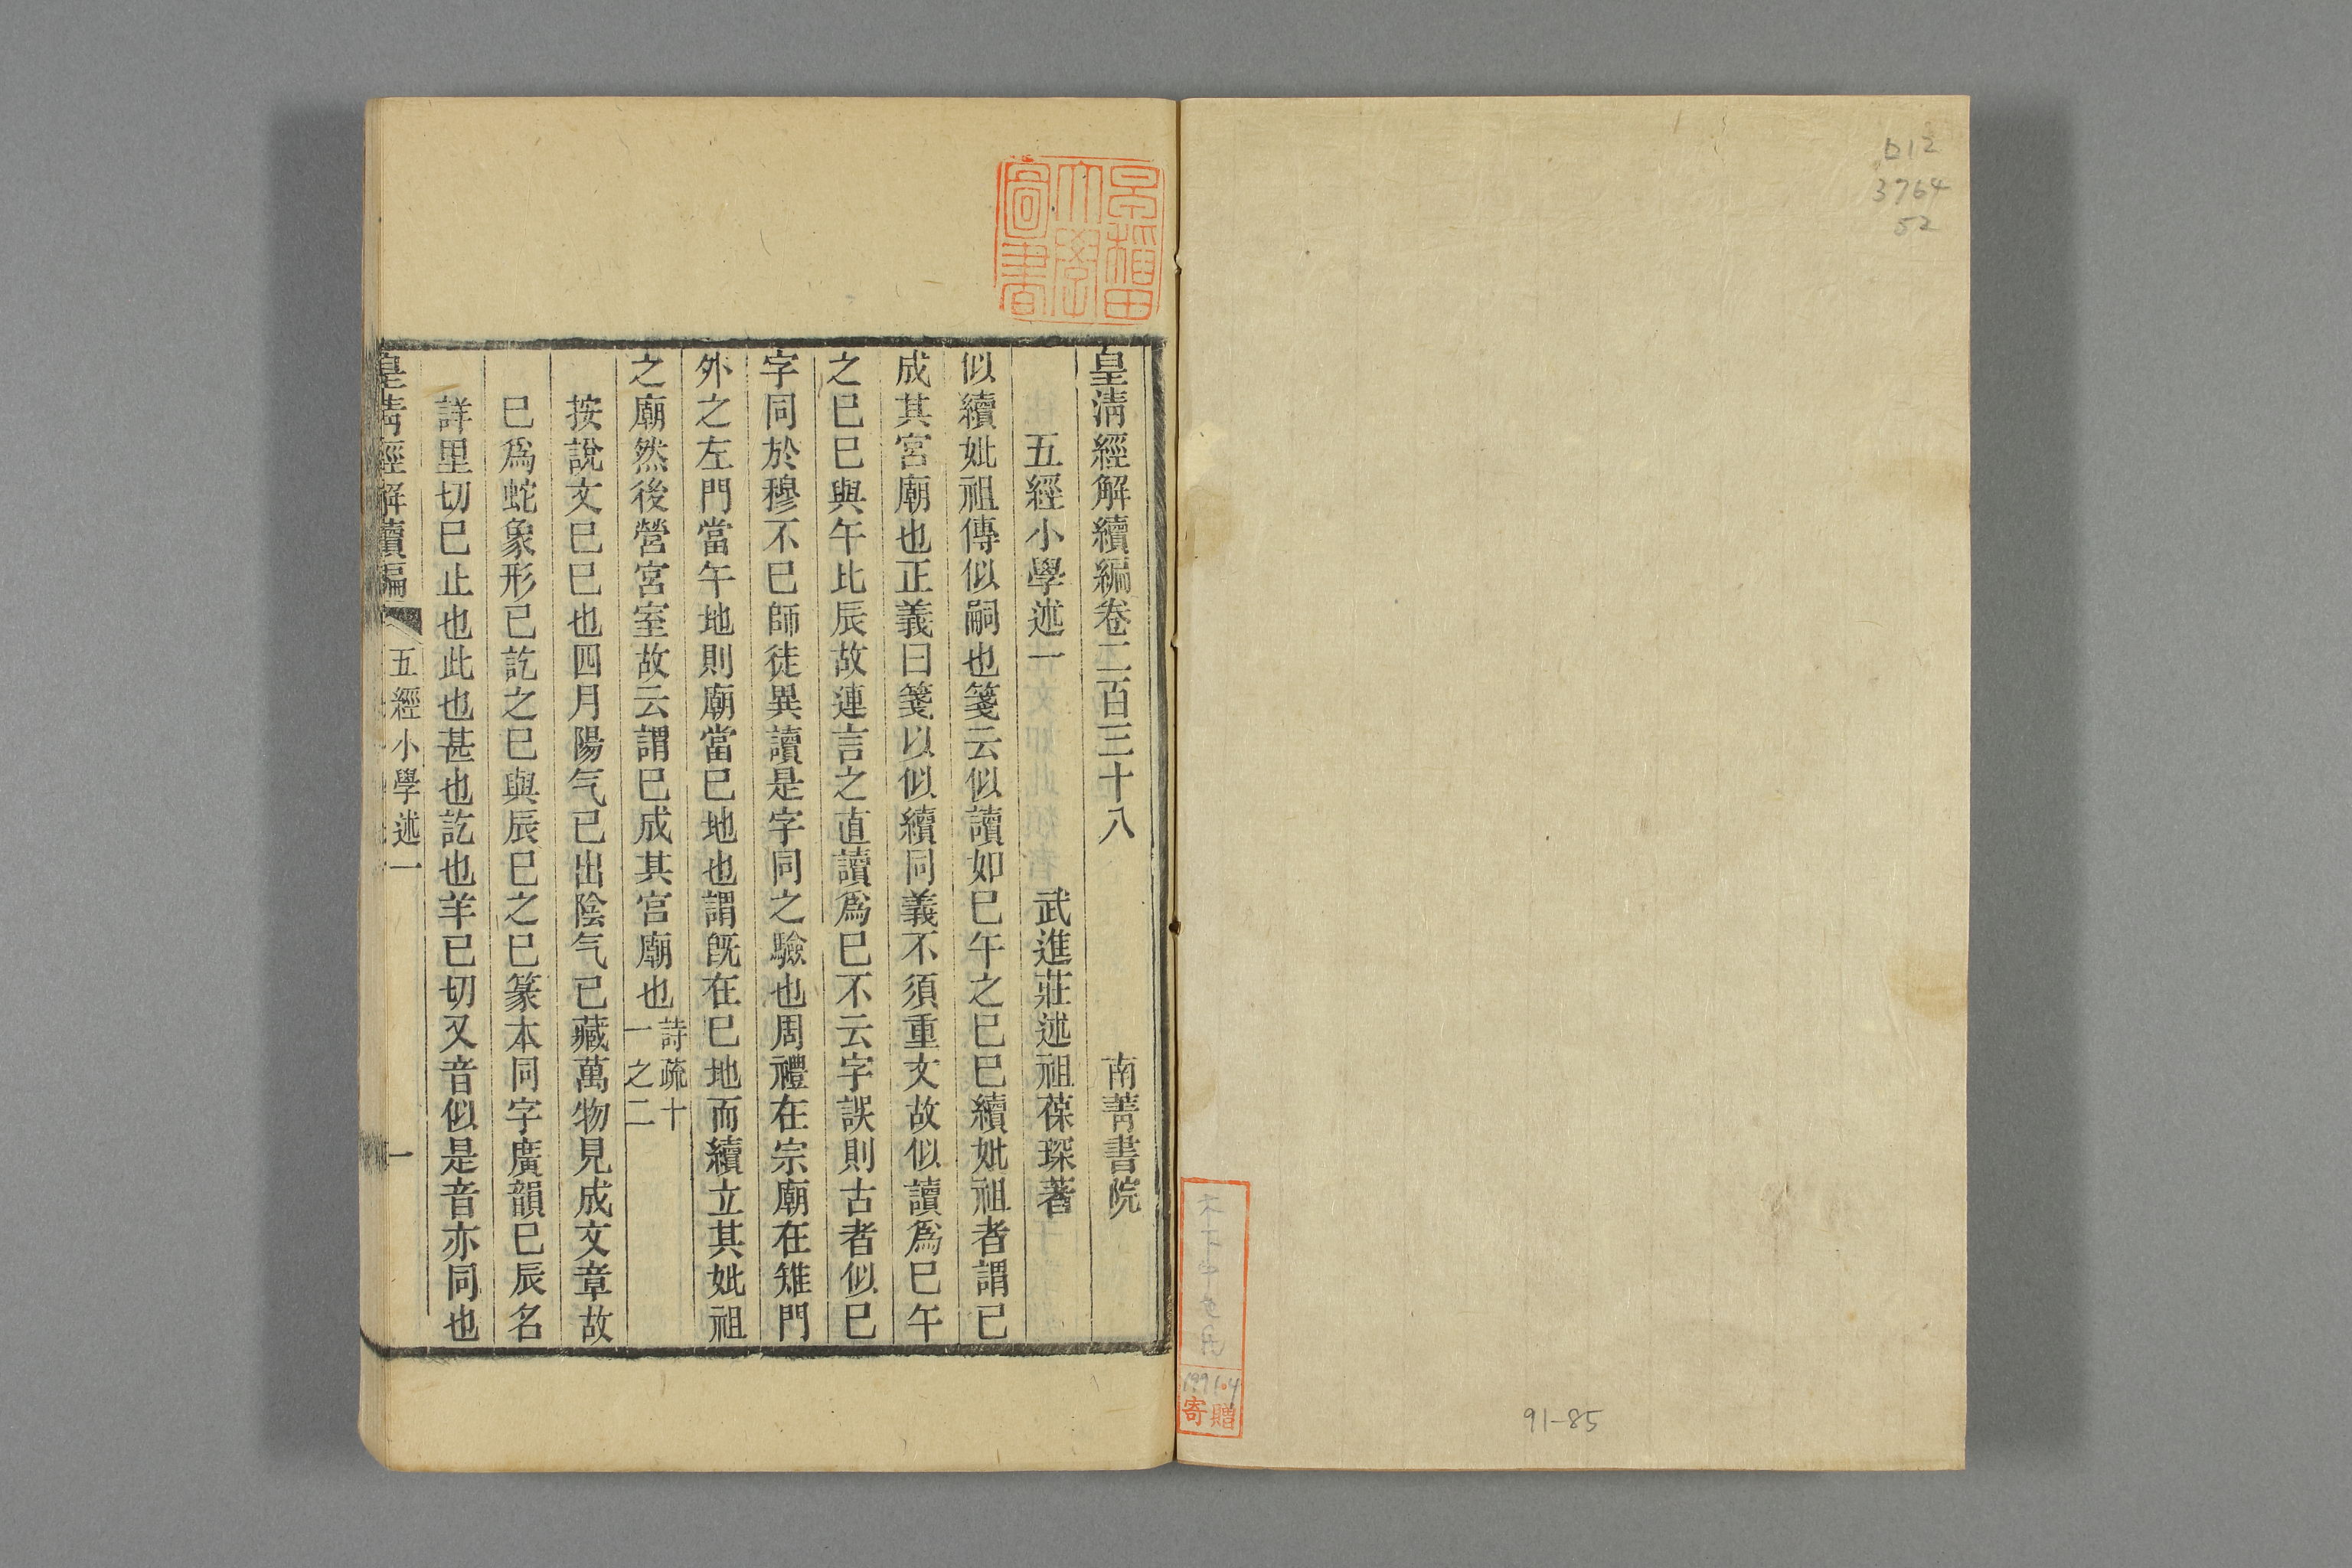 ロ12
3764
52
1991.4
寄贈
91-85
早稲田
大學
圖書
皇清經解續編卷二百三十八
南菁書院
五經小學述一
武進莊述祖葆琛著
似續妣祖傳似嗣也箋云似讀如巳午之巳巳續妣祖者謂已
成其宮廟也正義曰箋以似續同義不須重文故似讀為巳午
之巳巳與午比辰故連言之直讀為巳不云字誤則古者似巳
字同於穆不巳師徒異讀是字同之驗也周禮在宗廟在雉門
外之左門當午地則廟當巳地也謂旣在巳地而續立其妣祖
之廟然後營宮室故云謂巳成其宮廟也
詩疏十
一之二
按說文巳巳也四月陽气巳出陰气巳藏萬物見成文章故
巳爲蛇象形已訖之巳與辰巳之巳篆本同字廣韻巳辰名
詳里切巳止也此也甚也訖也羊已切又音似是音亦同也
皇清經解續編
五經小學述一
一